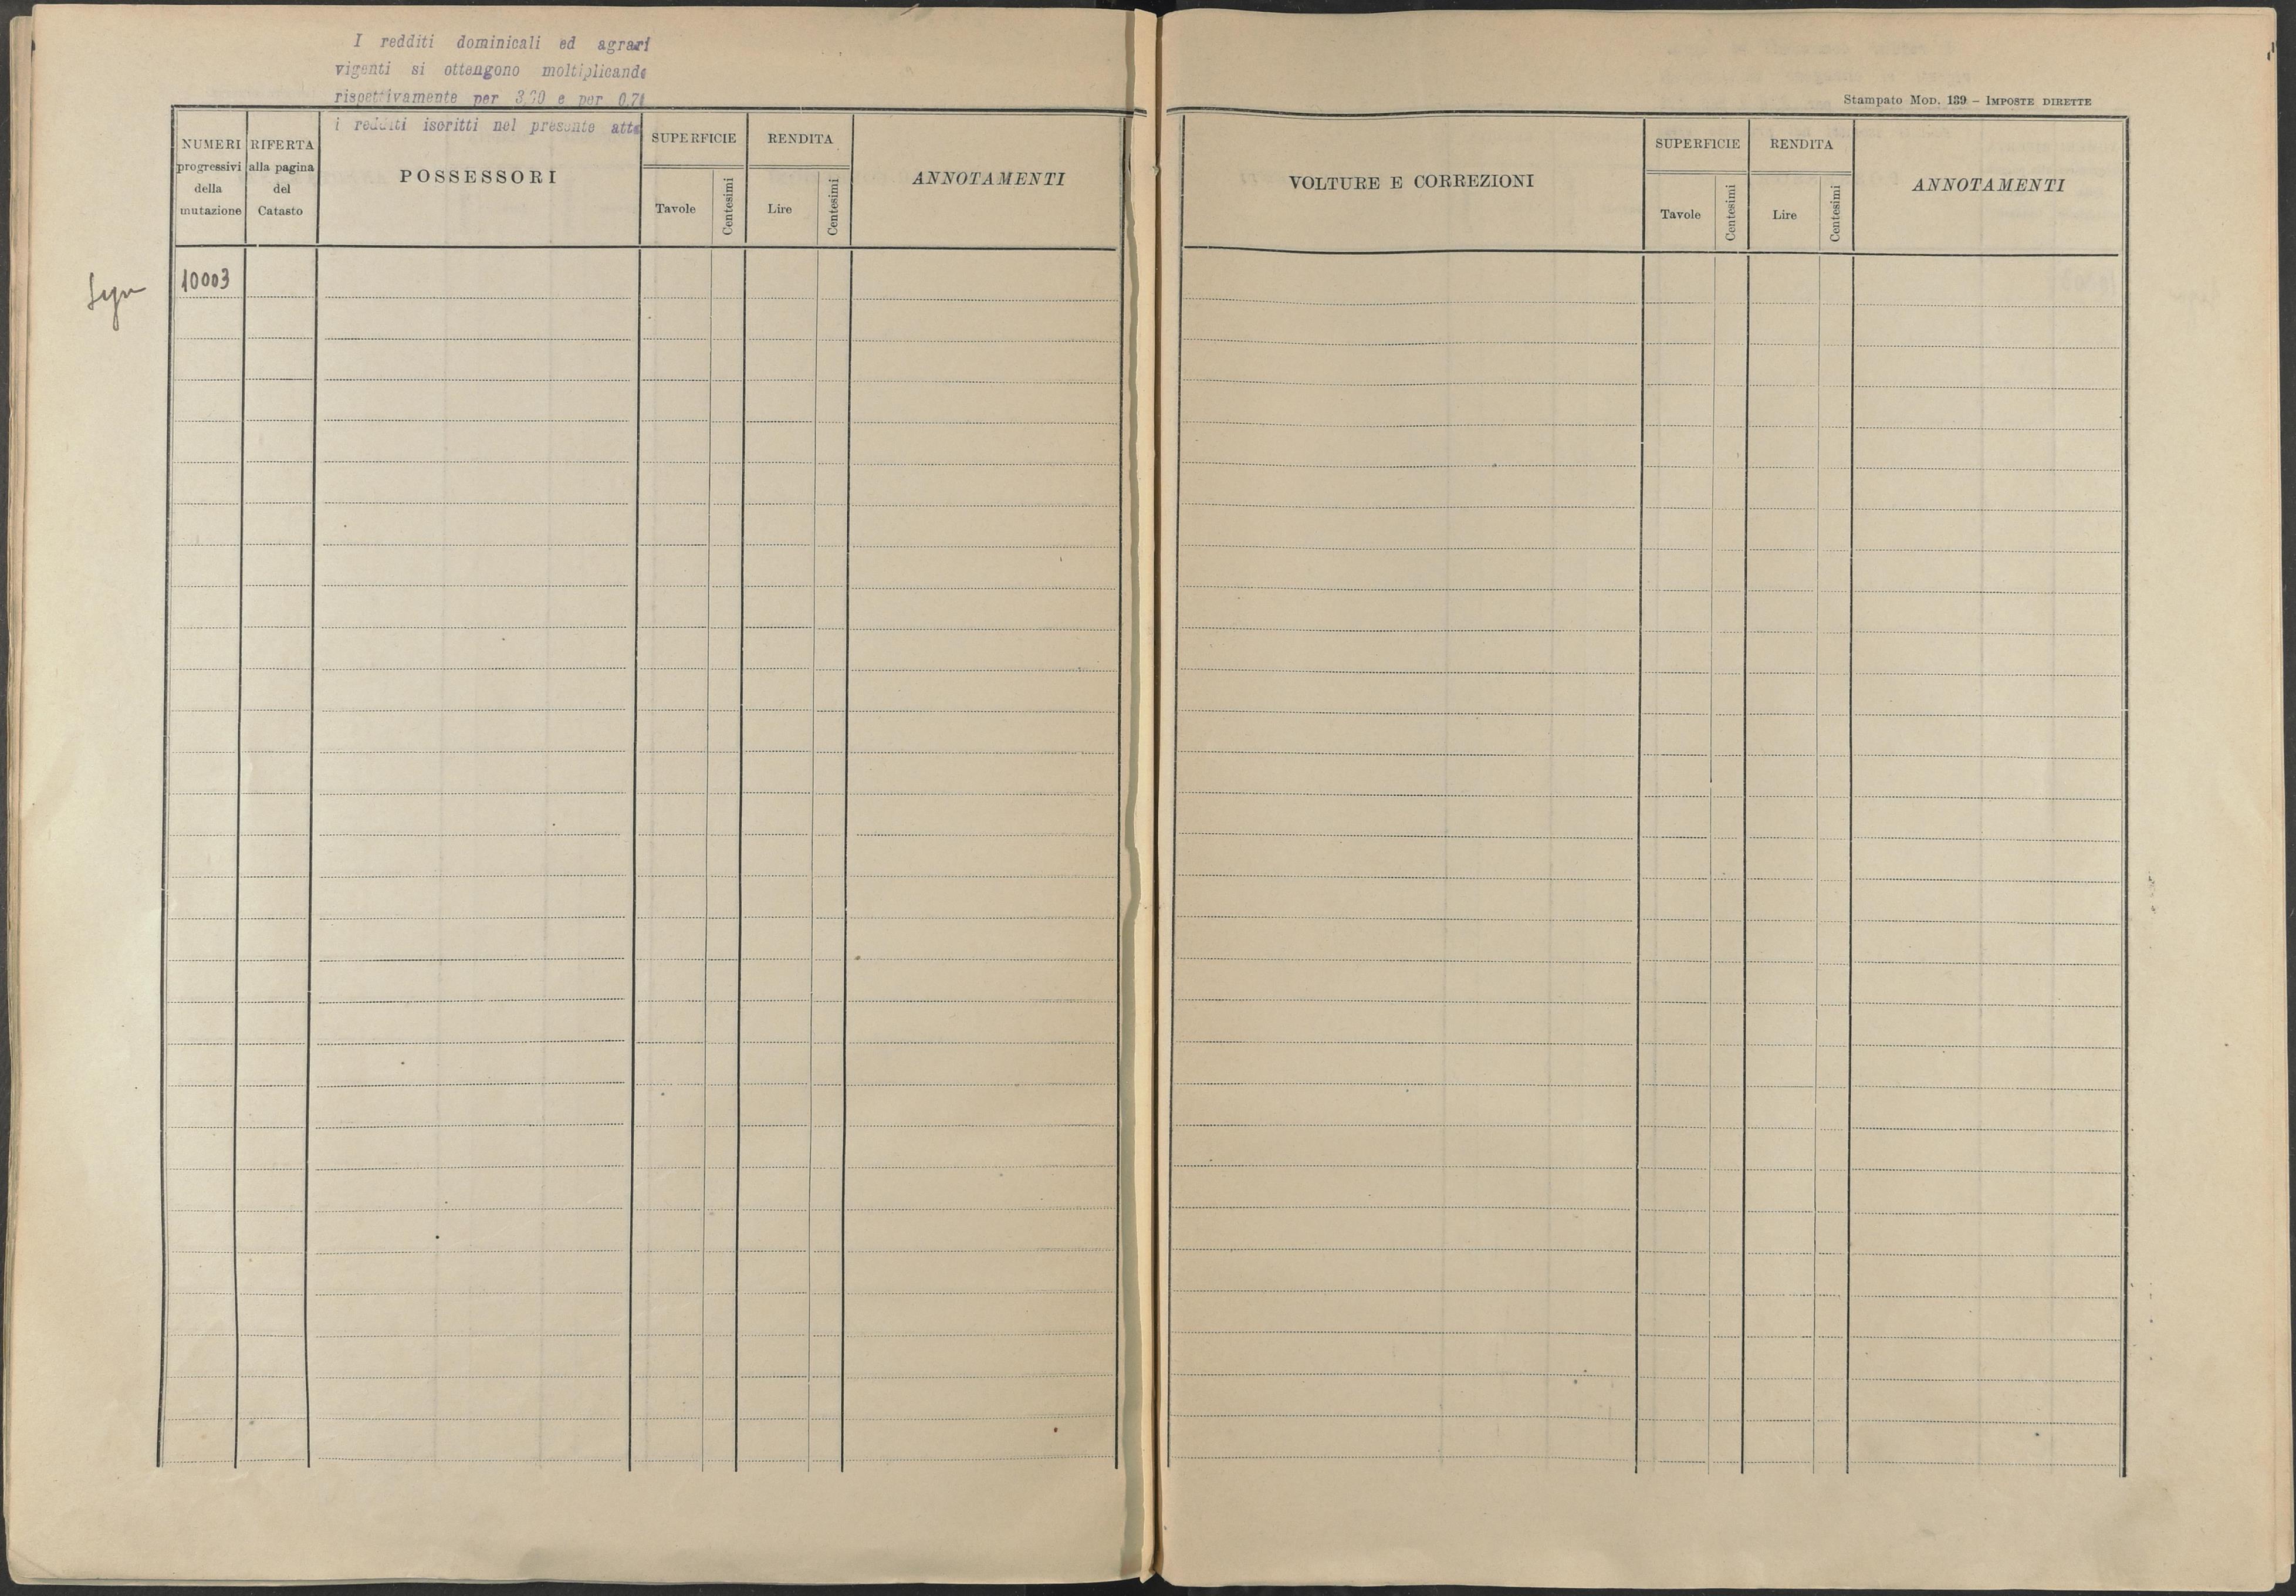 I redditi dominicali ed agrari
vigenti si ottengono moltiplicando
rispettivamente per e per
i redditi iscritti nel presente atto
Stampato Mod. 139 – Imposte dirette
NUMERI
progressivi
della
mutazione
RIFERTA
alla pagina
del
Catasto
POSSESSORI
SUPERFICIE
Tavole
Centesimi
RENDITA
Lire
Centesimi
ANNOTAMENTI
VOLTURE E CORREZIONI
SUPERFICIE
Tavole
Centesimi
RENDITA
Lire
Centesimi
ANNOTAMENTI
10003